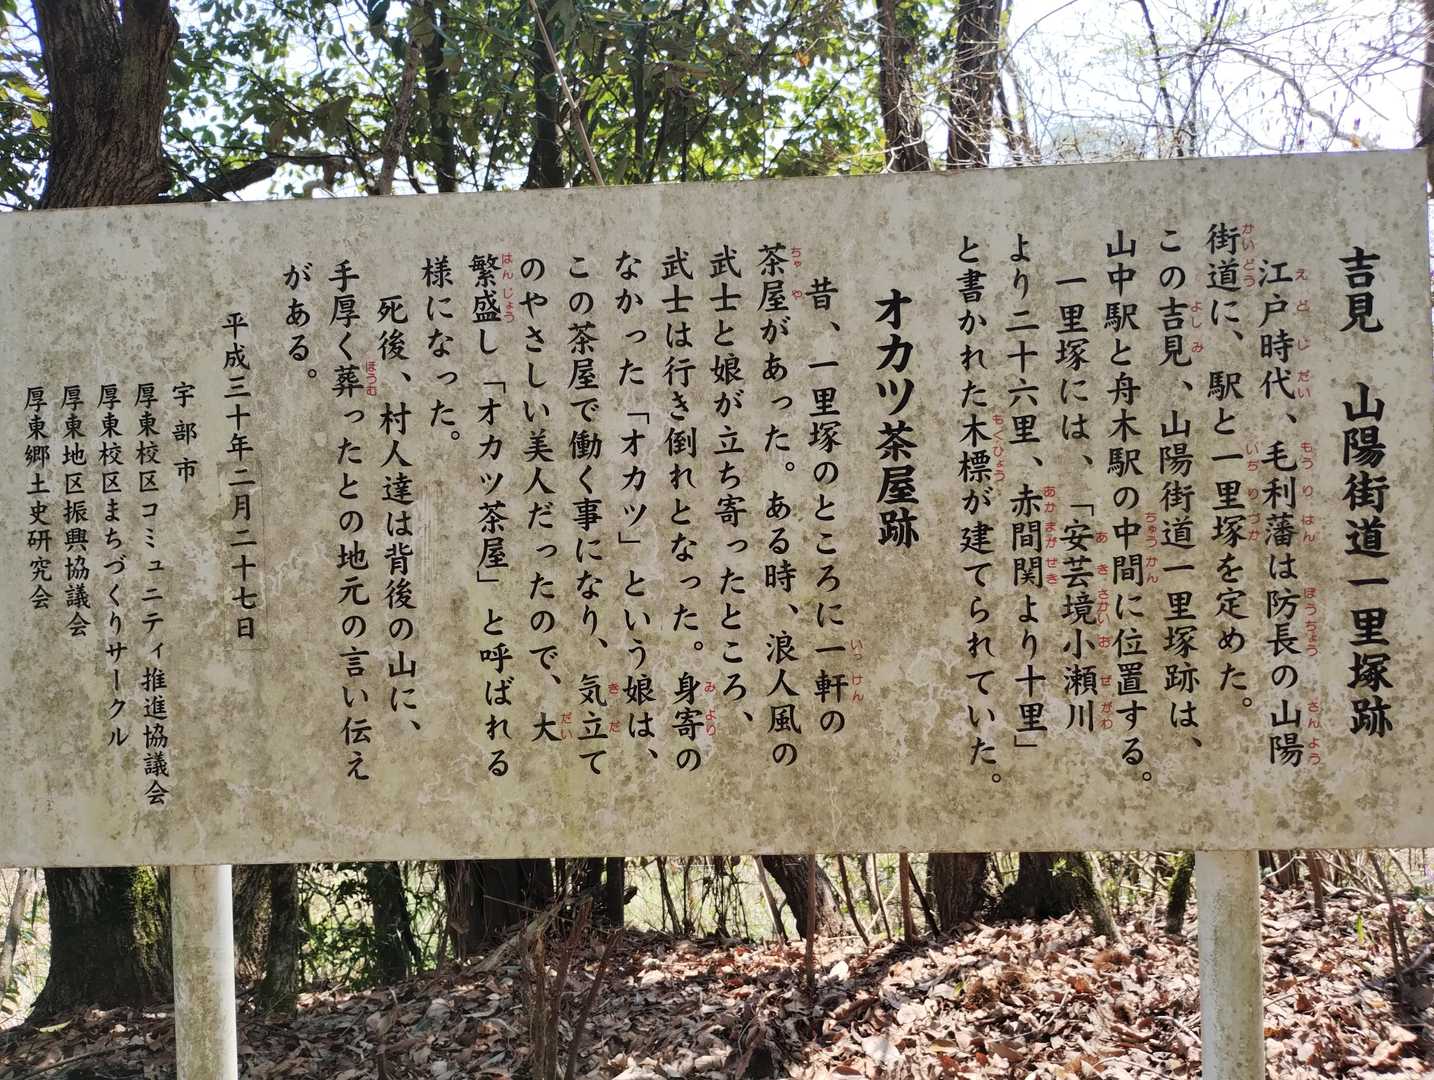 吉見　山陽街道一里塚跡
江戸時代、毛利藩は防長の山陽
街道に、駅と一里塚を定めた。
この吉見、山陽街道一里塚跡は、
山中駅と舟木駅の中間に位置する。
一里塚には、「安芸境小瀬川
より二十六里、赤間関より十里」
と書かれた木標が建てられていた。
オカツ茶屋跡
昔、一里塚のところに一軒の
茶屋があった。ある時、浪人風の
武士と娘が立ち寄ったところ、
武士は行き倒れとなった。身寄の
なかった「オカツ」という娘は、
この茶屋で働く事になり、気立て
のやさしい美人だったので、大
繁盛し「オカツ茶屋」と呼ばれる
様になった。
死後、村人達は背後の山に、
手厚く葬ったとの地元の言い伝え
がある。
平成三十年二月二十七日
宇部市
厚東校区コミュニティ推進協議会
厚東校区まちづくりサークル
厚東地区振興協議会
厚東郷土史研究会